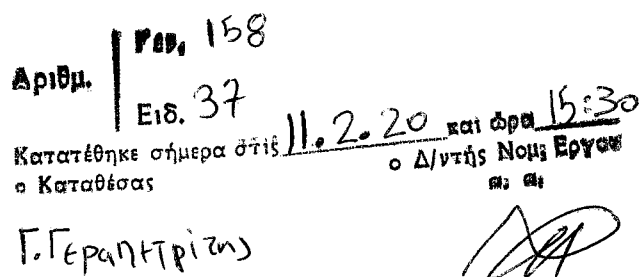 Αριθμ. Γεν. 158
Ειδ. 37
Κατατέθηκε σήμερα στις 11.2.20 και ώρα 15:30
ο Καταθέσας ο Δ/ντής Νομ. Εργου
α. α.
Γ. Γεραπετρίτης